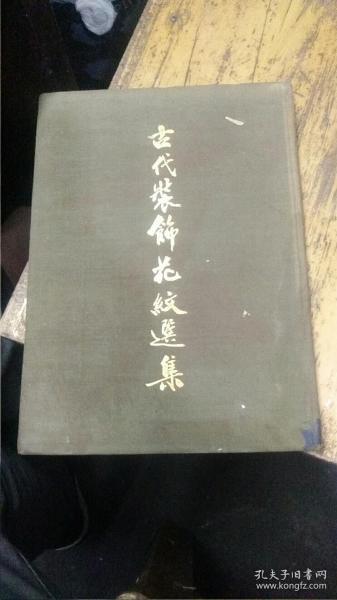 古代裝飾花紋選集
孔夫子旧书网
www.kongfz.com